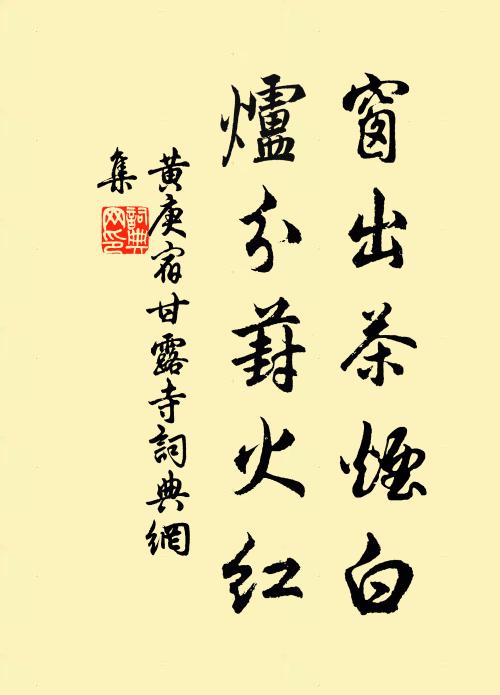 窗出茶煙白
爐分葑火红
黄庚宿甘露寺詞典網
集
詞典
网印